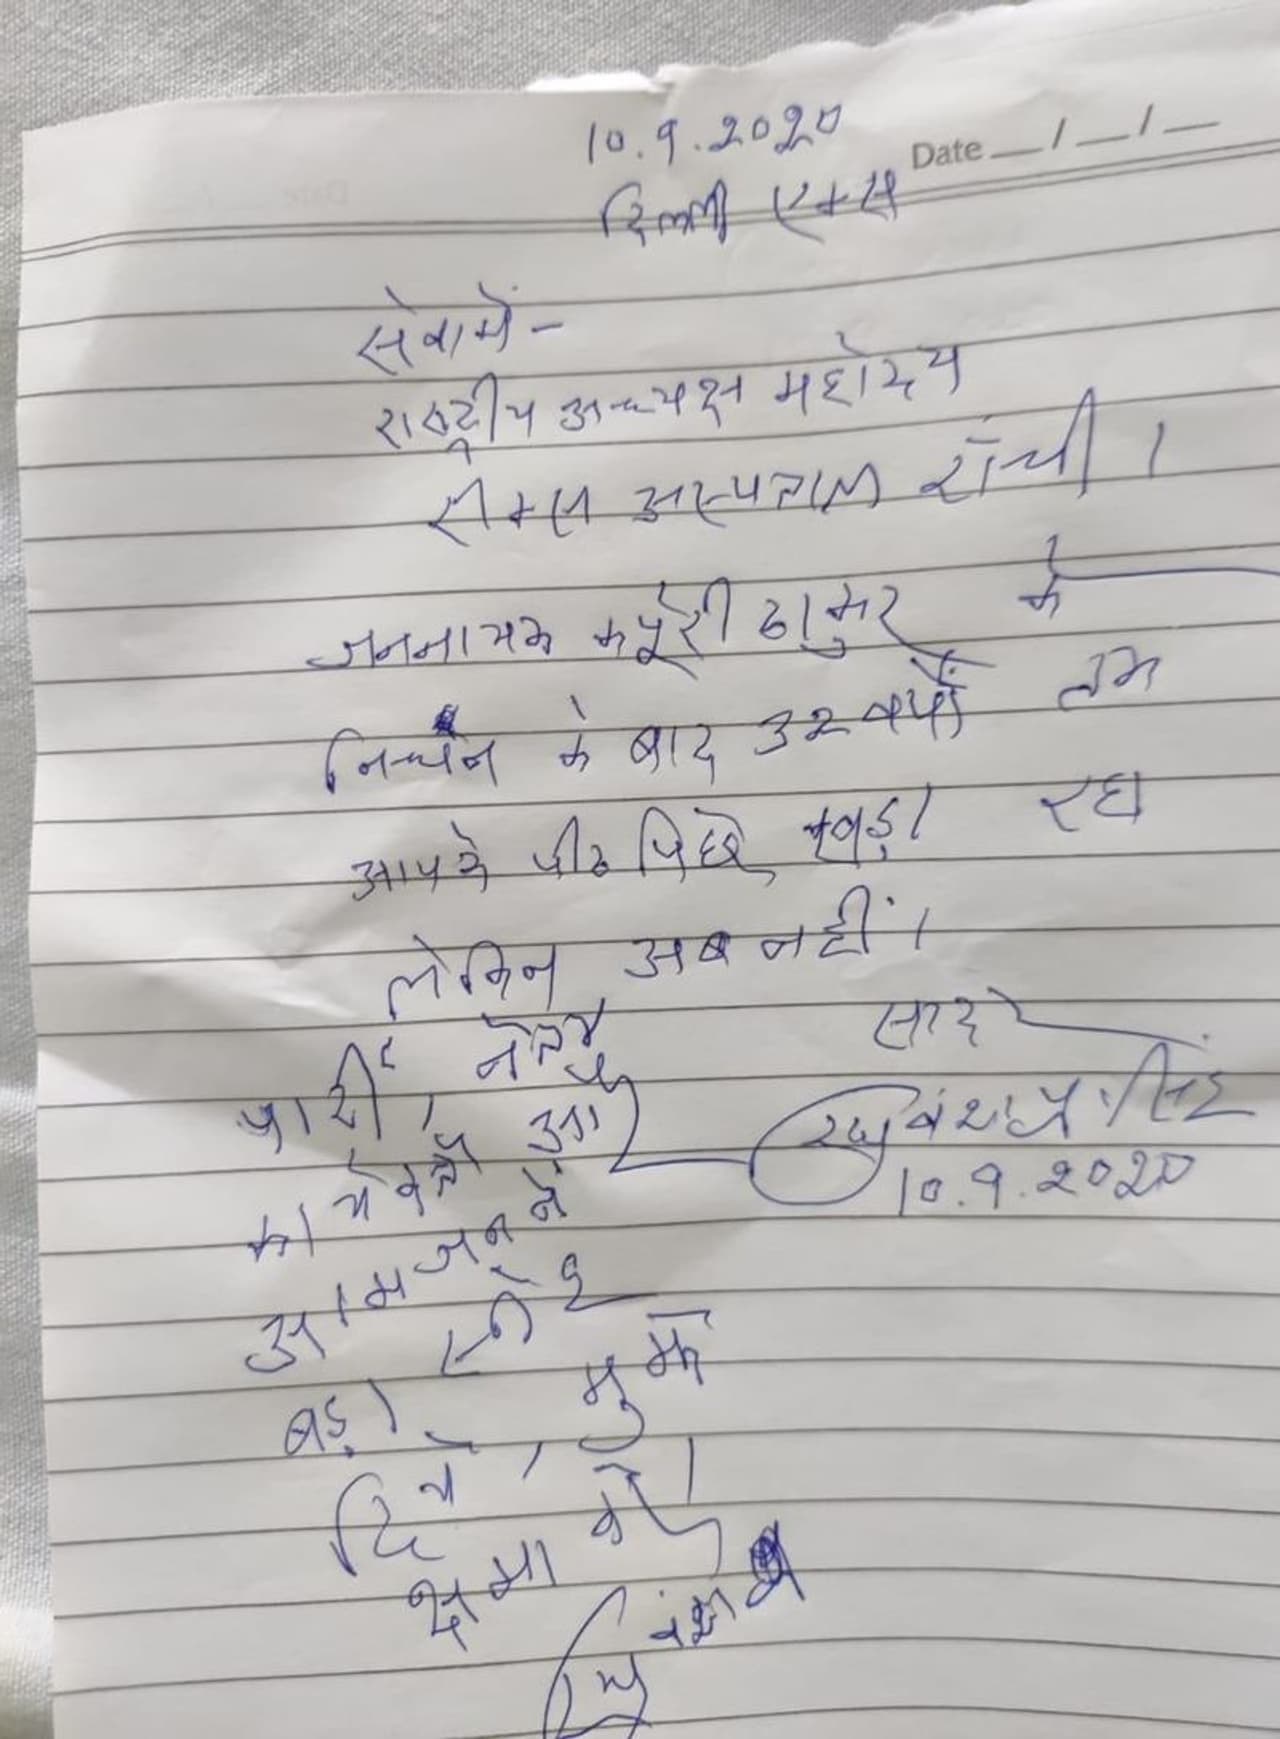 10.9.2020
Date __/__/__
दिल्ली एम्स
सेवामें-
राष्ट्रीय अध्यक्ष महोदय
रीम्स अस्पताल राँची।
जननायक कर्पूरी ठाकुर के
निधन के बाद 32 वर्षों तक
आपके पीठ पिछे खड़ा रहा
लेकिन अब नहीं।
सादर
पार्टी, नेता
रघुवंश प्र. सिंह
10.9.2020
कार्यकर्ता और
आमजन ने
बड़ा स्नेह
दिया, मुझे
क्षमा करें।
रघुवंश